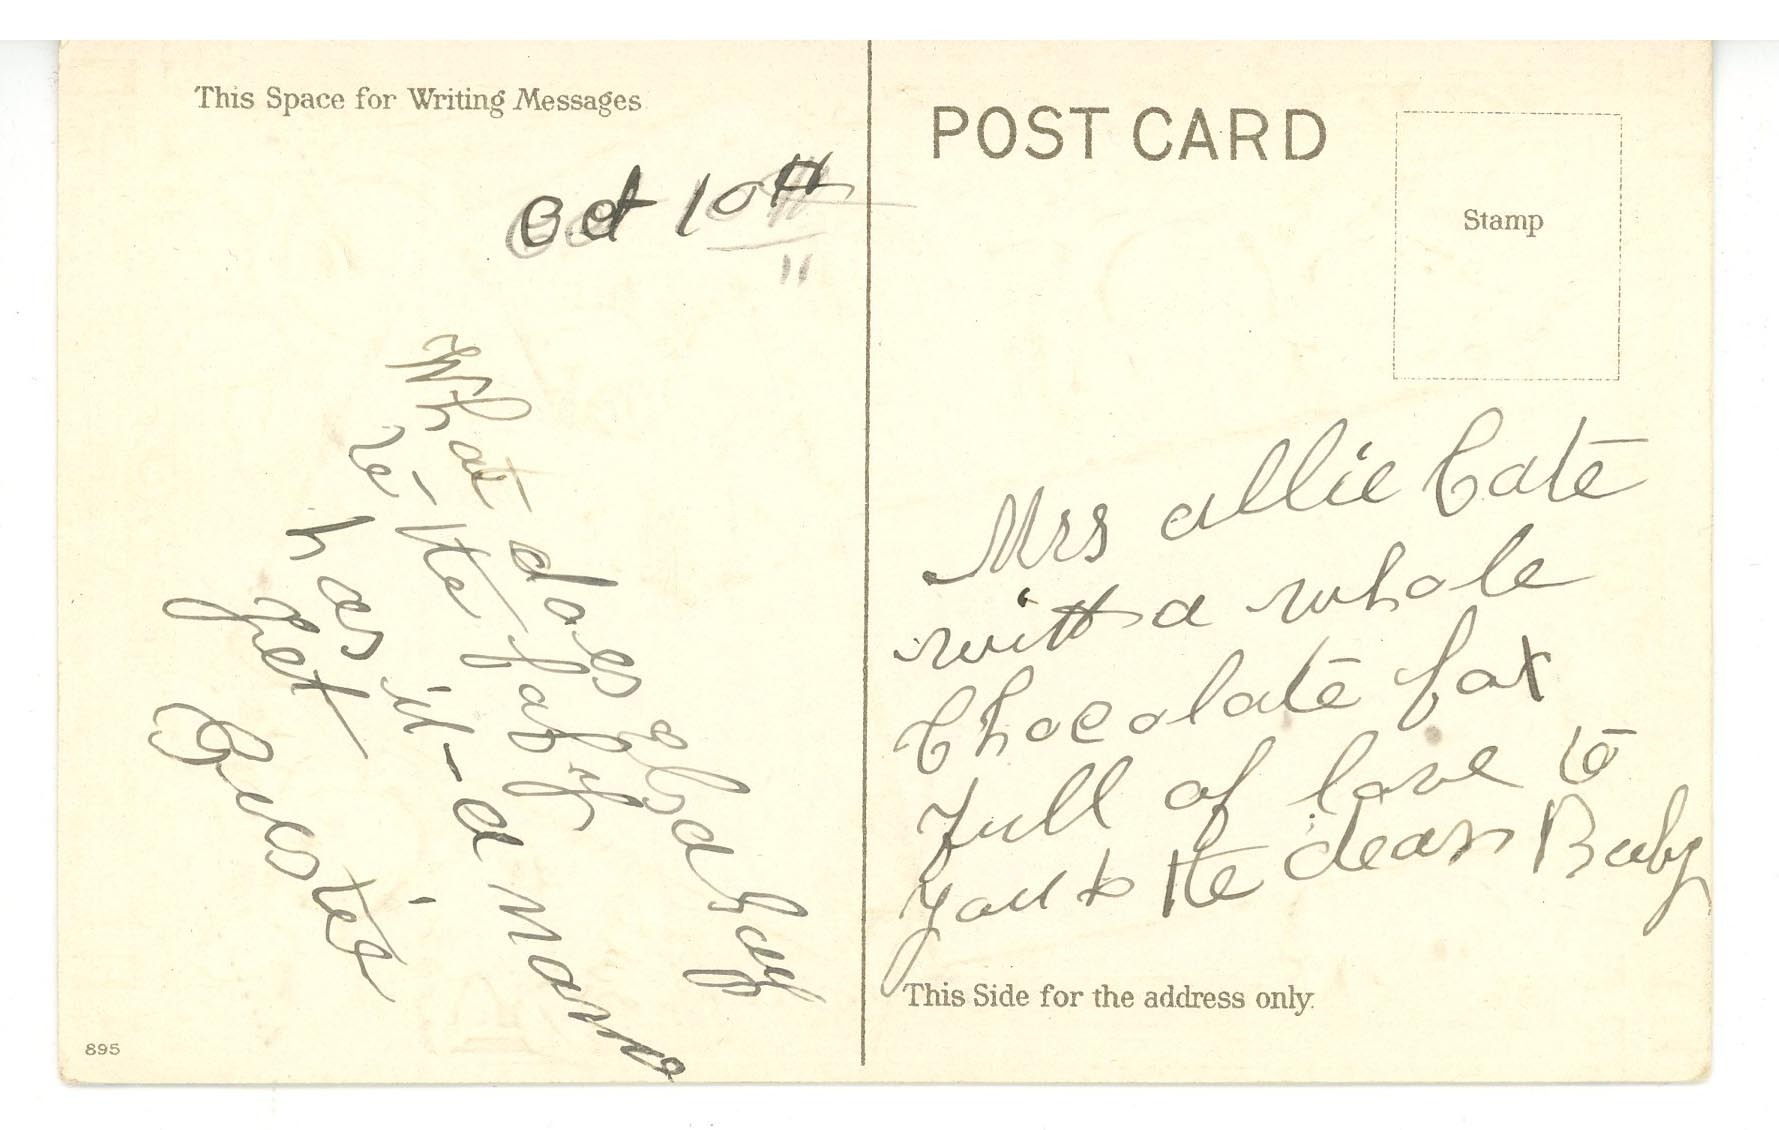 This Space for Writing Messages
POST CARD
Stamp
Oct 10th
11
What does
re the baby
has it a name
yet
Gustie
Mrs Allie Cate
with a whole
Chocolate fox
full of love to
you & the dear Baby
This Side for the address only.
895